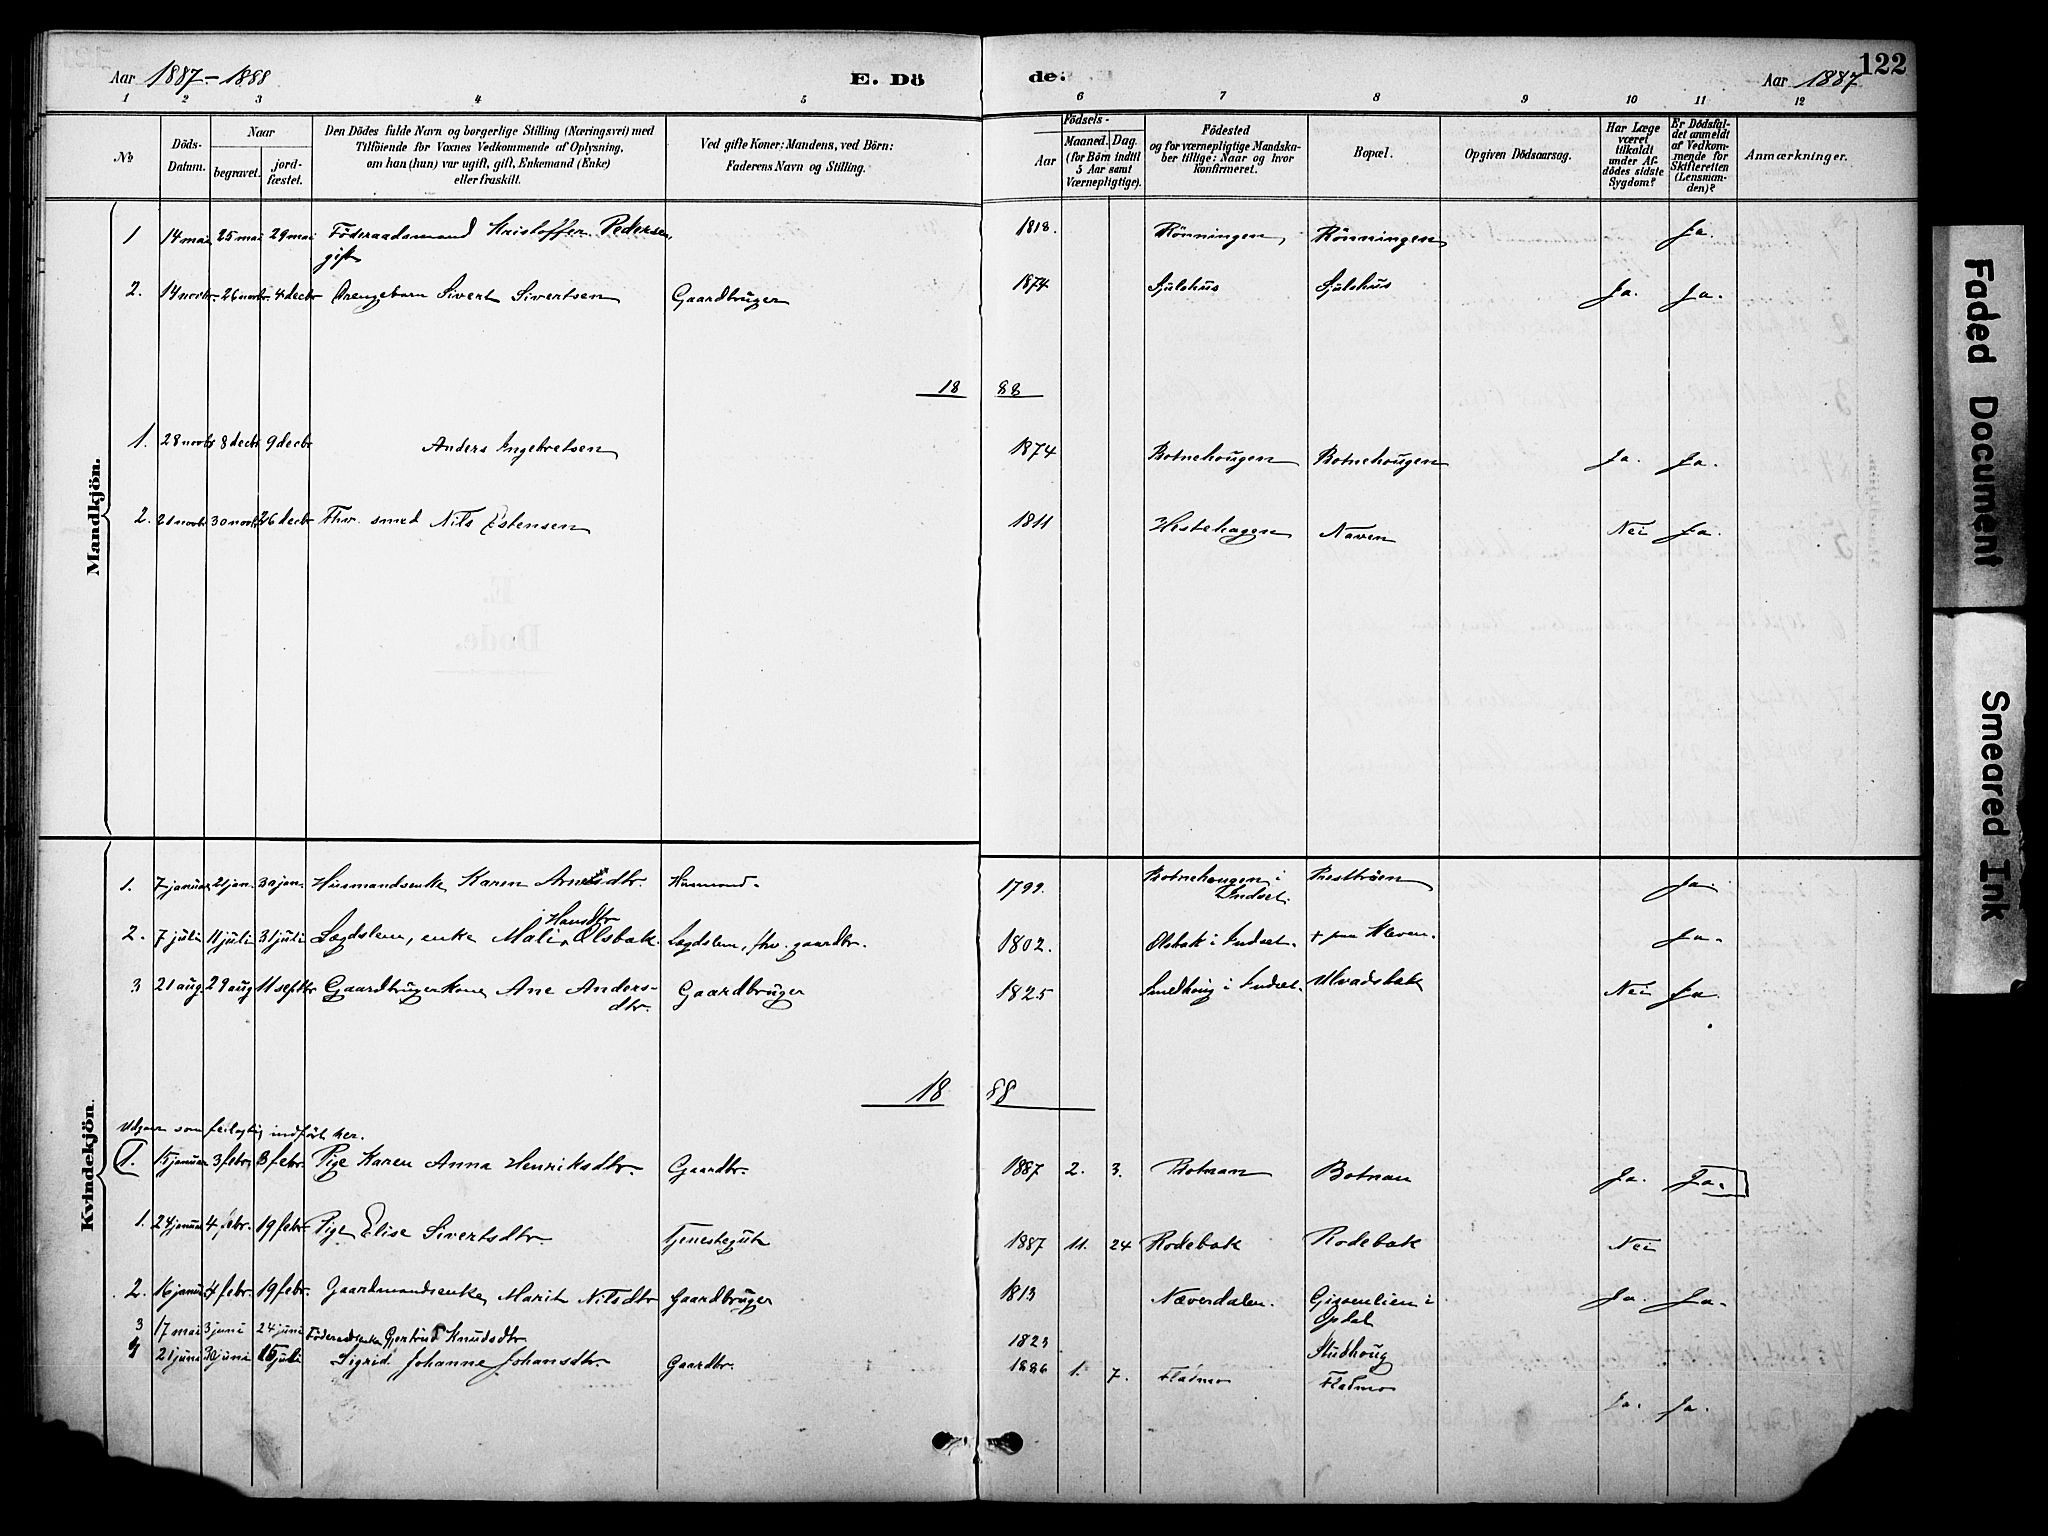 Aar 1887-1888
E. Dö
de.
Aar 1887
122
1 2 3 4 5 6 7 8 9 10 11 12
No
Döds-Datum.
Naar
begravet.
jord-fæstet.
Den Dödes fulde Navn og borgerlige Stilling (Næringsvei) med
Tilföiende for Voxnes Vedkommende af Oplysning,
om han (hun) var ugift, gift, Enkemand (Enke)
eller fraskilt.
Ved gifte Koner: Mandens, ved Börn:
Faderens Navn og Stilling.
Födsels-
Aar
Maaned. Dag.
(for Börn indtil
5 Aar samt
Værnepligtige).
Födested
og for værnepligtige Mandska-
ber tillige: Naar og hvor
konfirmeret.
Bopæl.
Opgiven Dödsaarsag.
Har Læge
været
tilkaldt
under Af-
dödes sidste
Sygdom?
Er Dödsfal-
det anmeldt
af Vedkom-
mende for
Skifteretten
(Lensman-
den)?
Anmærkninger.
Mandkjön.
1 14 mai 25 mai 29 mai Föderaadsmand Kristoffer Pedersen, 1818. Rönningen Rönningen Ja.
gift
2. 14 novbr. 26 novbr. 4 decbr Drengebarn Sivert Sivertsen Gaardbruger 1874 Sjulshus Sjulshus Ja. Ja.
18 88
1. 28 novbr 8 decbr 9 decbr Anders Ingebretsen 1874 Botnehougen Botnehougen Ja. Ja.
2. 21 novbr 30 novbr 26 decbr Fhv. smed Nils Estensen 1811 Hestehagen Naven Nei Ja.
Kvindekjön.
1. 7 januar 21 jan. 30 jan. Husmandsenke Karen Arnesdtr. Husmand. 1799. Botnehaugen i Presttrøen Ja.
Indset.
Hansdtr
2. 7 juli 11 juli 31 juli Lægdslem, enke Mali Olsbak. Lægdslem, fhv. gaardbr. 1802. Olsbak i Indset. + paa Kleven. Ja.
3 21 aug. 29 aug 11 septbr Gaardbrugerkone Ane Anders- Gaardbruger 1825 Smedhoug i Indset. Ulvadsbak Nei Ja.
dtr.
18 88
Udgaar som feilagtig indført her.
1. 15 januar 3 febr. 13 febr. Pige Karen Anna Henriksdtr. Gaardbr. 1887 2. 3. Botnan Botnan Ja. Ja.
1. 24 januar 4 febr. 19 febr. Pige Elise Sivertsdtr. Tjenestegut 1887 11. 24 Rodebak Rodebak Nei
2. 16 januar 4 febr. 19 febr. Gaardmandsenke Marit Nilsdtr Gaardbruger 1813 Næverdalen. Gissenlien i Ja. Ja.
Opdal
3 17 mai 3 juni 24 juni Föderaadsenke Gjertrud Knudsdtr 1823 Studhoug
4 21 juni 30 juni 15 juli Sigrid Johanne Johansdtr. Gaardbr. 1886 1. 7. Flatmo Flatmo Ja. Ja.
Faded Document
Smeared Ink